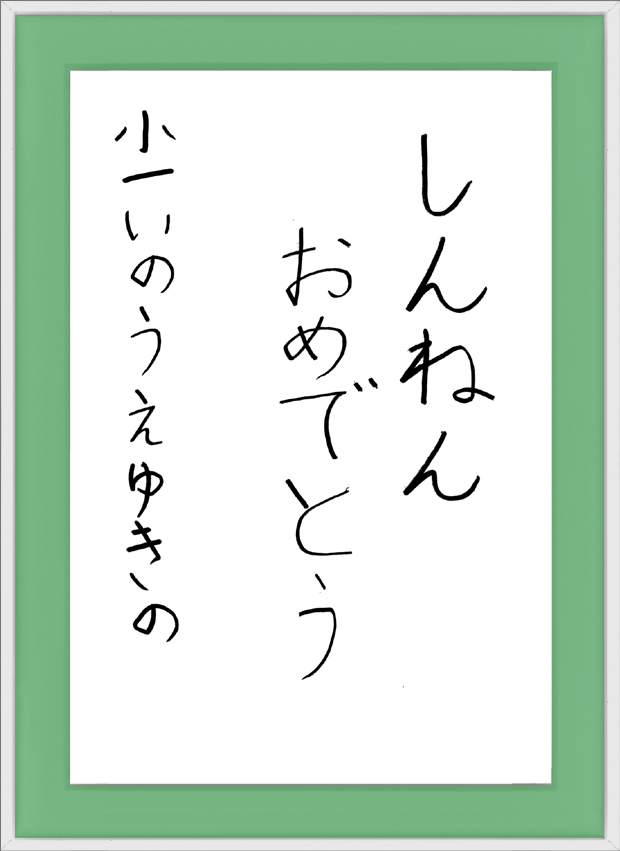 しんねん
おめでとう
小一いのうえゆきの